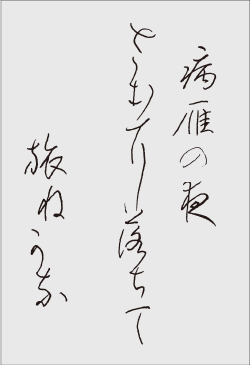 病雁の夜
さむに落ちて
旅ねかな